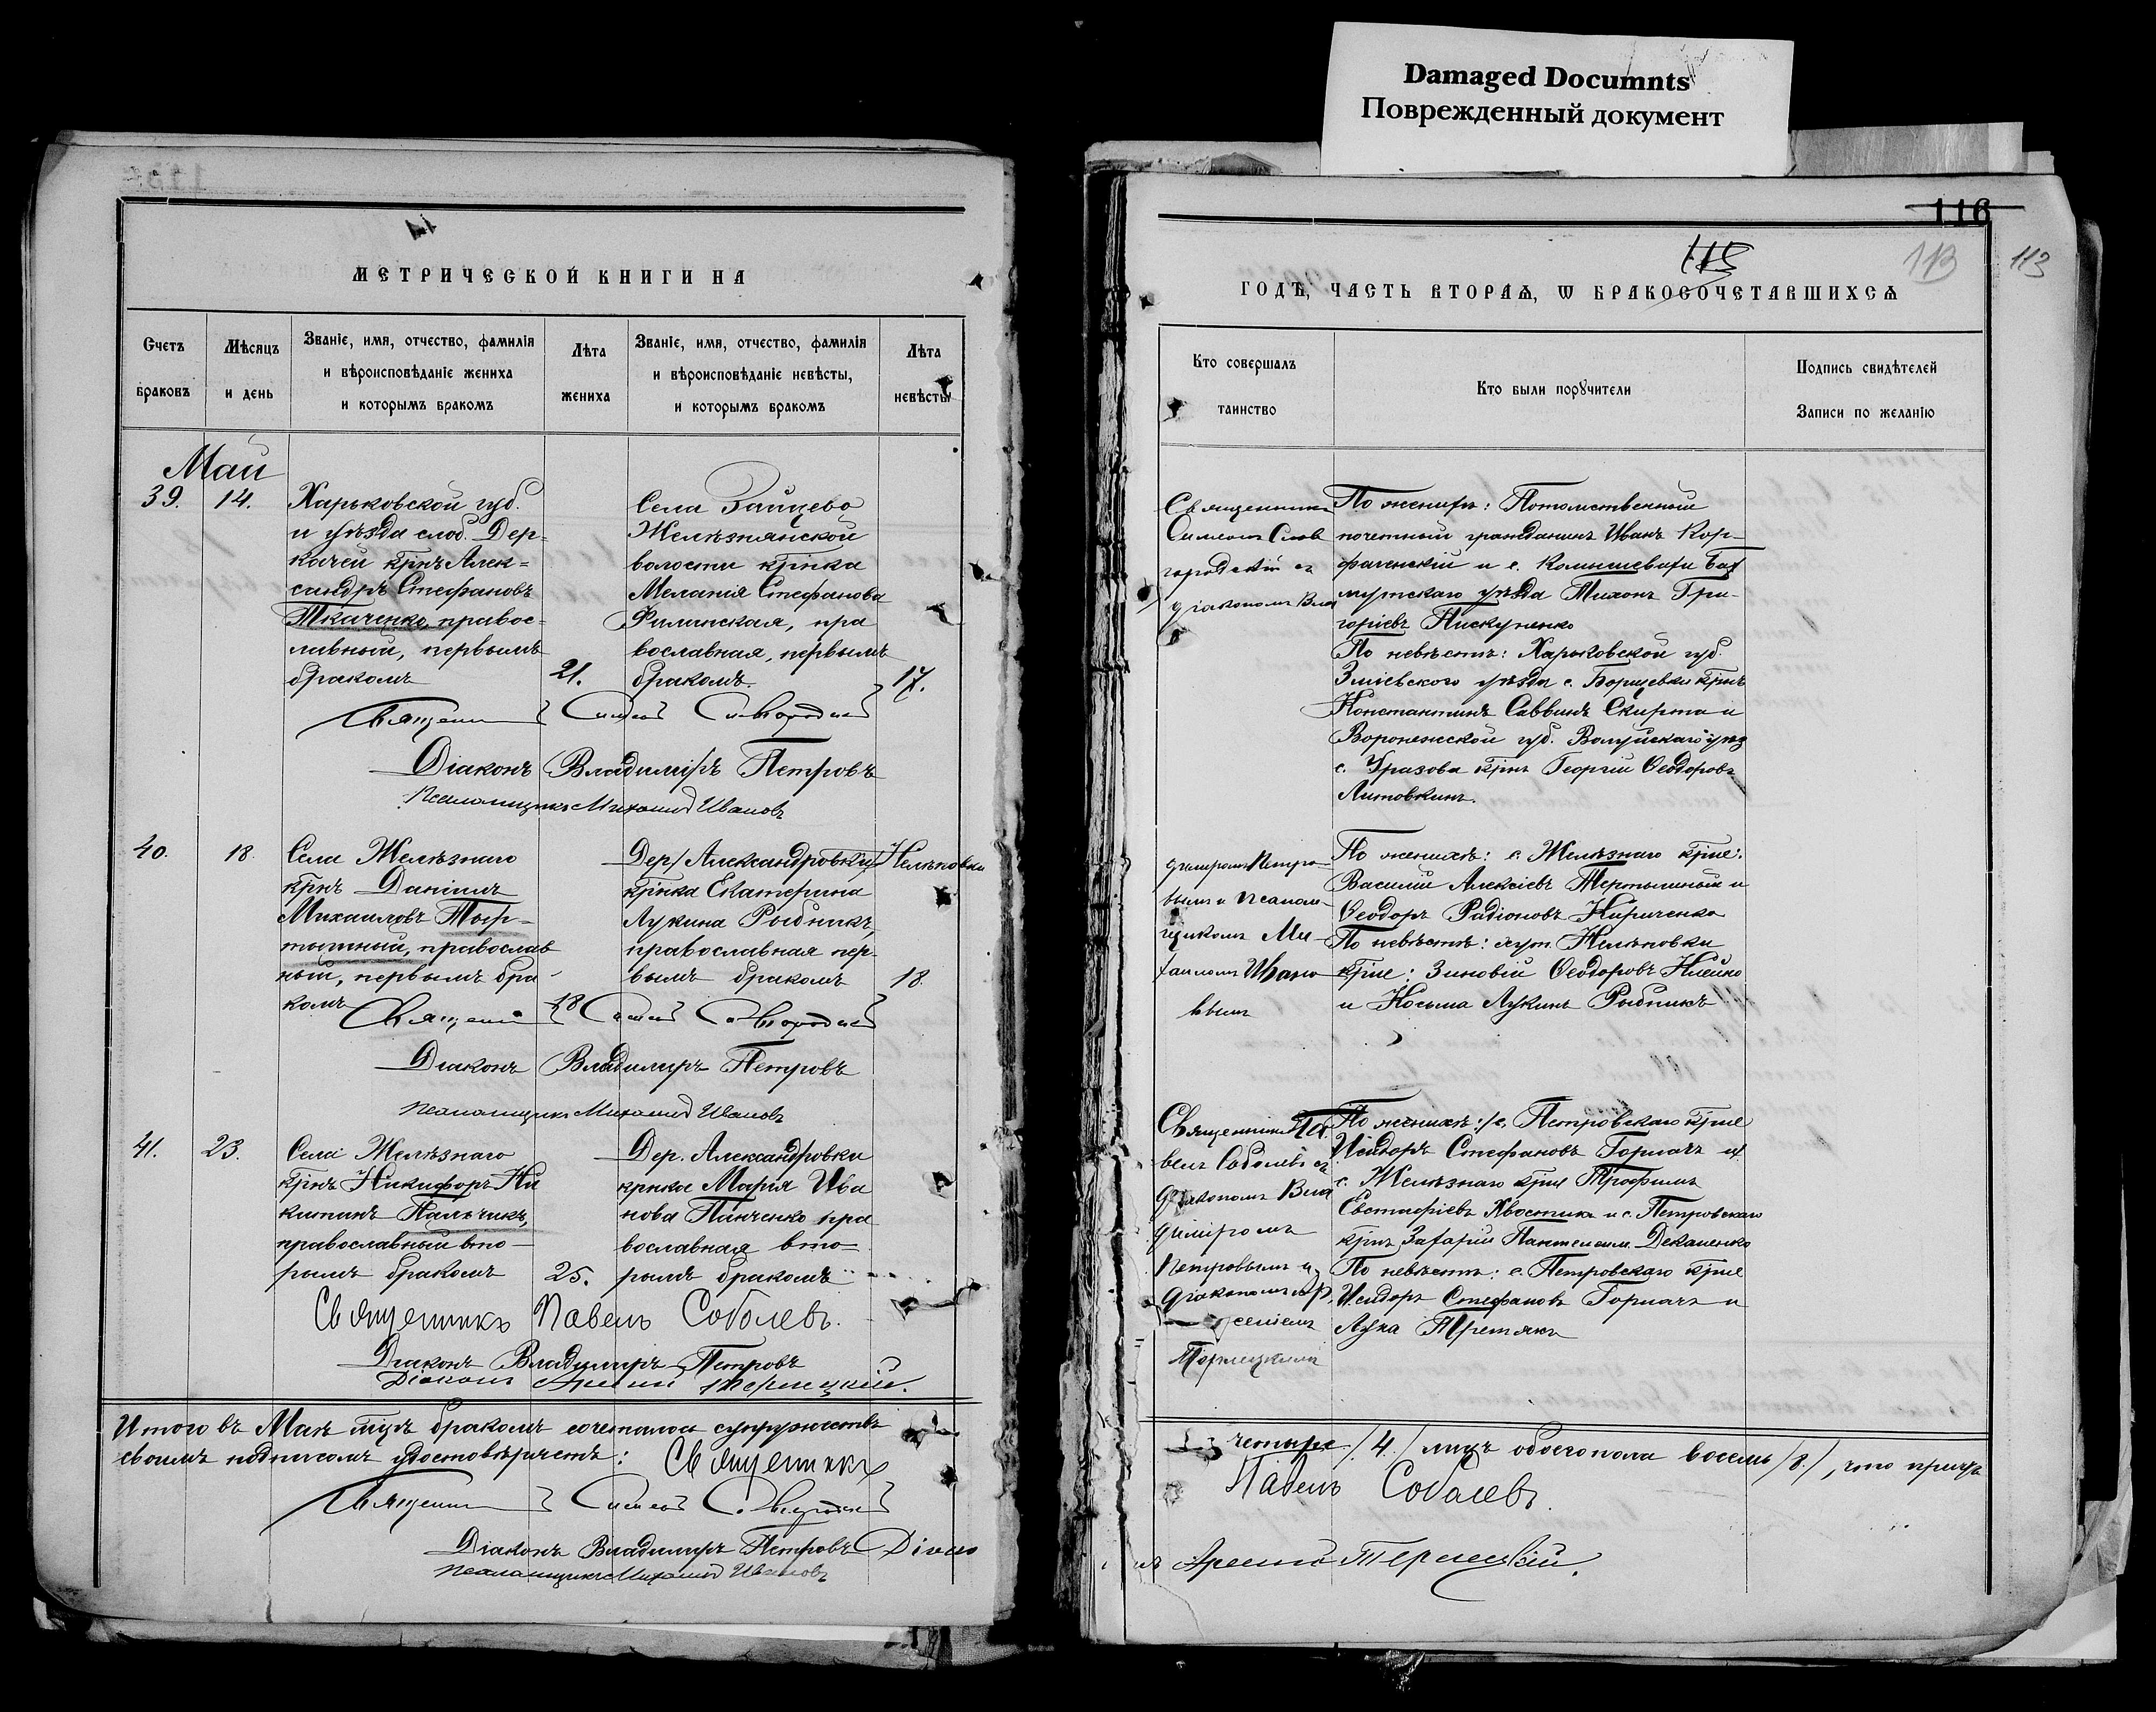 Damaged Documnts
Поврежденный документ
МЕТРИЧЕСКОЙ КНИГИ НА
Счетъ браковъ
Мѣсяцъ и день
Званіе, имя, отчество, фамилія
и вѣроисповѣданіе жениха
и которымъ бракомъ
Лѣта жениха
Званіе, имя, отчество, фамилія
и вѣроисповѣданіе невѣсты,
и которымъ бракомъ
Лѣта невѣсты
Май
39.
14.
Харьковской губ.
и уѣзда слоб. Дер-
качей крнъ Алек-
сандръ Стефановъ
Ткаченко, правос-
лавный, первымъ
бракомъ
21.
Села Зайцево
Желѣзнянской
волости крнка
Меланія Стефанова
Филинская, пра
вославная, первымъ
бракомъ.
17.
Діаконъ Владиміръ Петровъ
Псаломщикъ Михаилъ Ивановъ
40.
18.
Села Желѣзнаго
крнъ Даніилъ
Михаиловъ Тер-
тышный, православ
ный, первымъ бра-
комъ
18
Дер. Александровки Нелѣповки
крнка Екатерина
Лукина Рыбникъ,
православная пер-
вымъ бракомъ
18.
Діаконъ Владимиръ Петровъ
Псаломщикъ Михаилъ Ивановъ
41.
23.
Села Желѣзнаго
крнъ Никифоръ Ни
китинъ Пальчикъ,
православный вто-
рымъ бракомъ
25.
Дер. Александровки
крнка Марія Ива
нова Панченко пра
вославная вто-
рымъ бракомъ
Священникъ Павелъ Соболевъ.
Діаконъ Владимиръ Петровъ
Діаконъ Терлецкій.
Итого въ Маѣ бракомъ сочеталось супружествъ
своимъ подписомъ удостовѣряетъ: Священникъ
Діаконъ Владимиръ Петровъ Діако
Псаломщикъ Михаилъ Ивановъ
116
115
113
113
ГОДЪ, ЧАСТЬ ВТОРАѦ, Ѡ БРАКОСОЧЕТАВШИХСѦ
Кто совершалъ
таинство
Кто были порꙋчители
Подпись свидѣтелей
Записи по желанію
Священникъ
Симеонъ Слов
городскій съ
діакономъ Вла
По женихѣ: Потомственный
почетный гражданинъ Иванъ Кор-
и с. Бах
мутскаго уѣзда Тихонъ Гри-
горіевъ Пискуненко
По невѣстѣ: Харьковской губ.
Зміевского уѣзда с. Борщевки крнъ
Константинъ Саввинъ Скирта и
Воронежской губ. Валуйскаго уѣз
с. Уразова крнъ Георгій Ѳеодоровъ
Литовкинъ.
диміромъ Петро-
вымъ и псалом-
щикомъ Ми-
хаиломъ Ивано
вымъ
По женихѣ: с. Желѣзнаго крне:
Василій Алексіевъ Тертышный и
Ѳеодоръ Радіоновъ Кириченко
По невѣстѣ: хут. Нелѣповки
крне: Зиновій Ѳеодоровъ Клейно
и Косьма Лукинъ Рыбникъ
Священникъ Па
велъ Соболевъ съ
діакономъ Вла
диміромъ
Петровымъ и
діакономъ Ар
сеніемъ
Терлецкимъ
По женихѣ: с. Петровскаго крне
Исидоръ Стефановъ Горпачъ и
с. Желѣзнаго крне Трофимъ
Евстафіевъ Хвостикъ и с. Петровскаго
крнъ Захарій Пантелеим. Деканенко
По невѣстѣ: с. Петровскаго крне
Исидоръ Стефановъ Горпачъ и
Лука Третякъ
четыре /4./ лицъ обоего пола восемь /8./, что причтъ
Павелъ Соболевъ.
нъ Терлецкій.